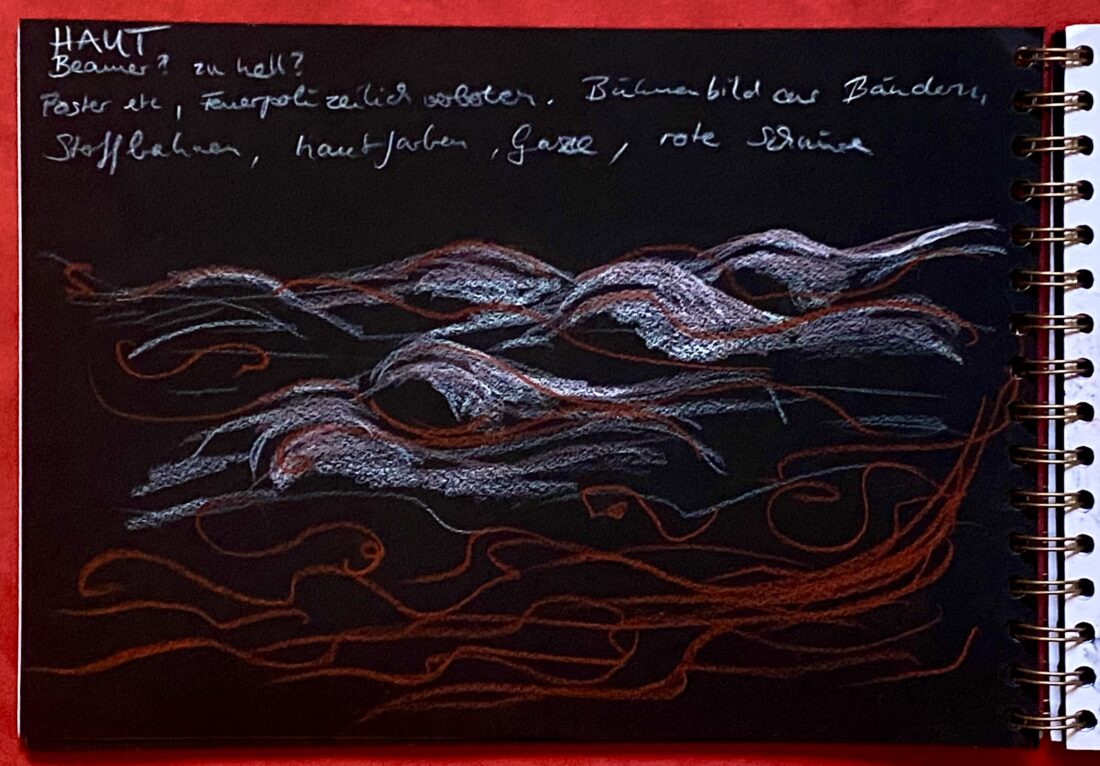 HAUT
Beamer? zu hell?
Poster etc, Feuerpolizeilich verboten. Bühnenbild aus Bändern,
Stoffbahnen, hautfarben, Gaze, rote Schnüre